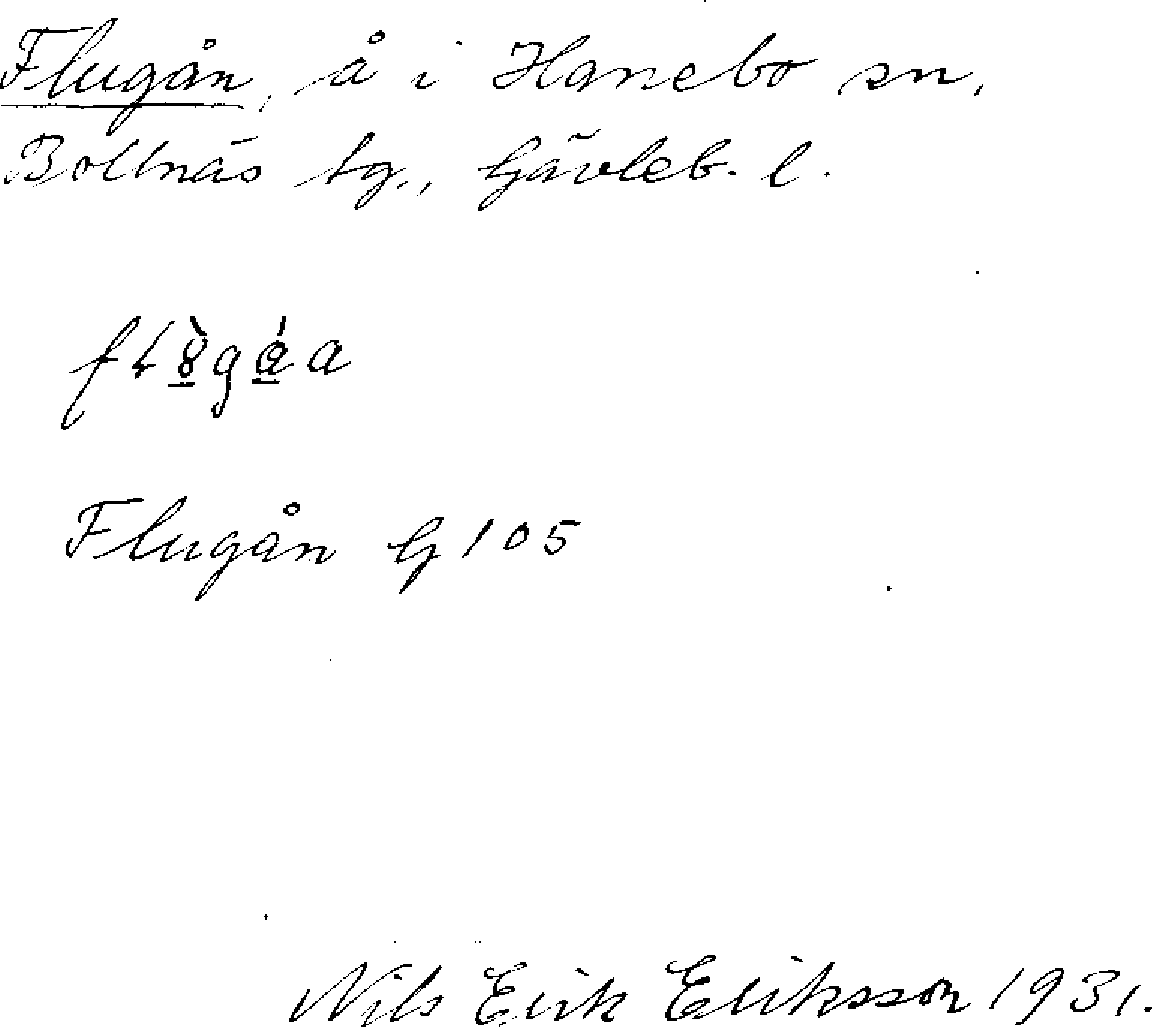 Flugån, å i Hanebo sn,
Bollnäs tg., Gävleb. l.
Flugån G 105
Nils Erik Eriksson 1931.